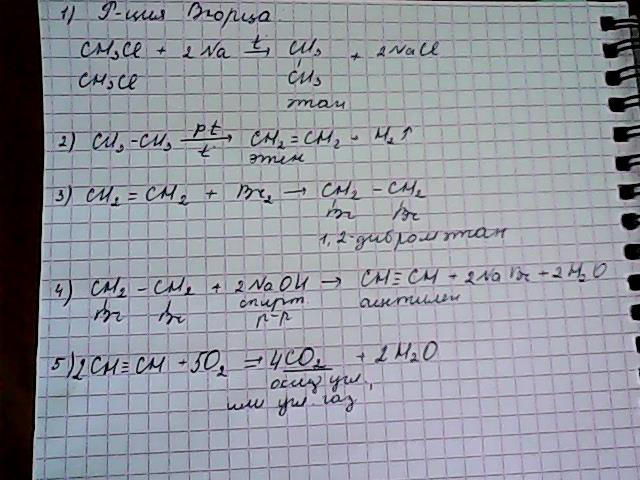 1) Р-ция Вюрца.
CH₃Cl + 2Na →(t) CH₃ + 2NaCl
CH₃Cl CH₃
этан
2) CH₃-CH₃ →(pt, t) CH₂=CH₂ + H₂↑
этен
3) CH₂=CH₂ + Br₂ → CH₂-CH₂
Br Br
1,2-дибромэтан
4) CH₂-CH₂ + 2NaOH → CH≡CH + 2NaBr + 2H₂O
Br Br спирт. ацетилен
р-р
5) 2CH≡CH + 5O₂ → 4CO₂ + 2H₂O
оксид угл.,
или угл. газ